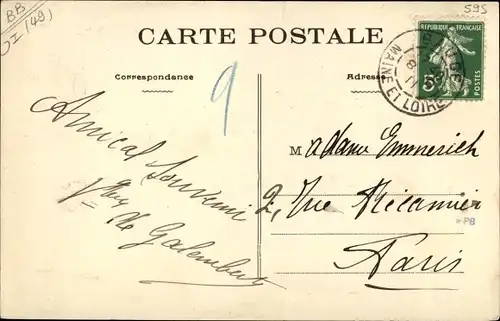 BB
I (49)
595
CARTE POSTALE
Correspondance
Adresse
9
5c
POSTES
MAINE ET LOIRE
Amical Souvenir
de Galembert
Madame Emmerich
2, Rue Récamier
Paris